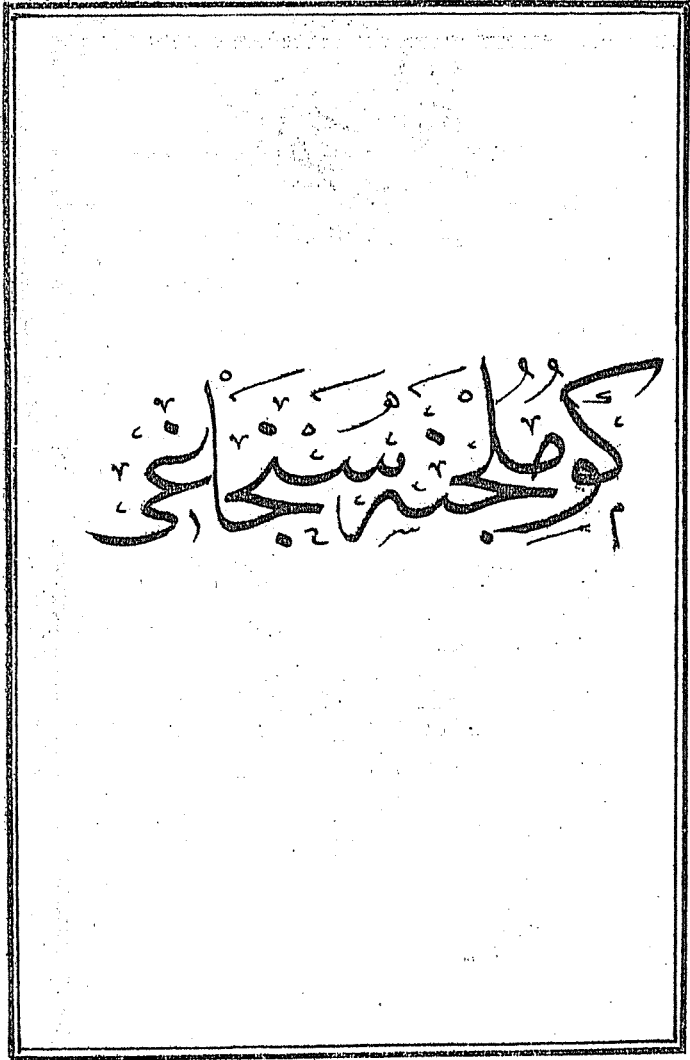 كوملجنه سنجاغى